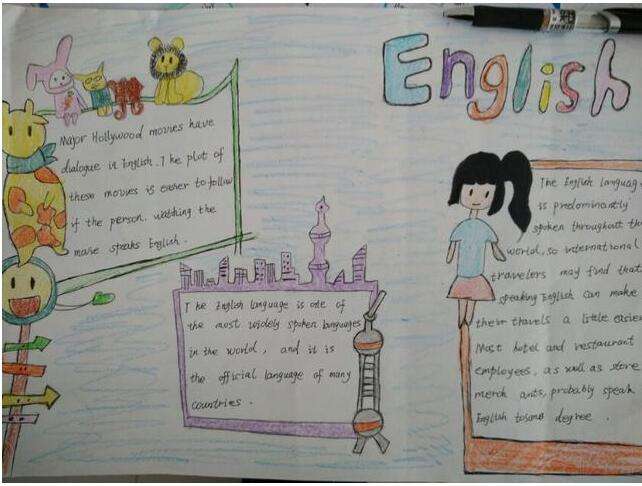 English
Major Hollywood movies have
dialogue in English. The plot of
these movies is easier to follow
if the person. watching the
movie speaks English.
The English language is one of
the most widely spoken languages
in the world, and it is
the official language of many
countries.
The English languag
is predominantly
spoken throughout th
world, so international
travelers may find that
speaking English can make
their travels a little easier
Most hotel and restaurant
employees, as well as store
merch ants, probably speak
English to some degree.